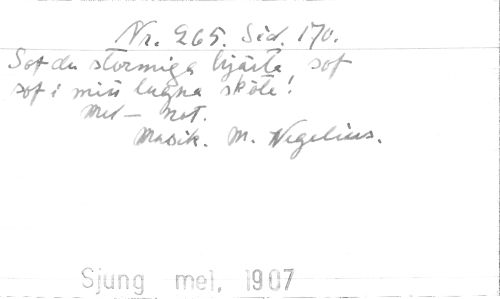 Nr. 265. Sid. 170.
Sof du stormiga hjärta, sof
sof i min lugna sköte!
Mel – not.
Musik. M. Wegelius.
Sjung mel, 1907